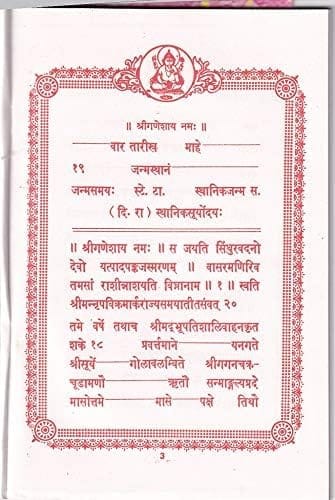 ॥ श्रीगणेशाय नमः ॥
वार तारीख माहे
१९ जन्मस्थानं
जन्मसमयः स्टे. टा. स्थानिकजन्म स.
(दि. रा) स्थानिकसूर्योदयः
॥ श्रीगणेशाय नमः ॥ स जयति सिंधुरवदनो
देवो यत्पादपङ्कजस्मरणम् । वासरमणिरिव
तमसां राशीन्नाशयति विघ्नानाम् ॥ १ ॥ स्वति
श्रीमन्नृपविक्रमार्कराज्यसमयातीतसंवत् २०
तमे वर्षे तथाच श्रीमद्भूपतिशालिवाहनकृत
शके १८ प्रवर्त्तमाने यनगते
श्रीसूर्ये गोलावलम्बिते श्रीगगनचक्र-
चूडामणौ ऋतौ सन्माङ्गल्यप्रदे
मासोत्तमे मासे पक्षे तिथौ
3